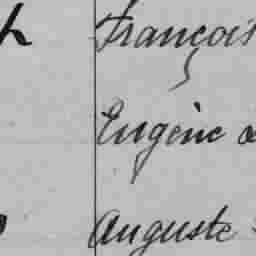 François
Eugène
Auguste